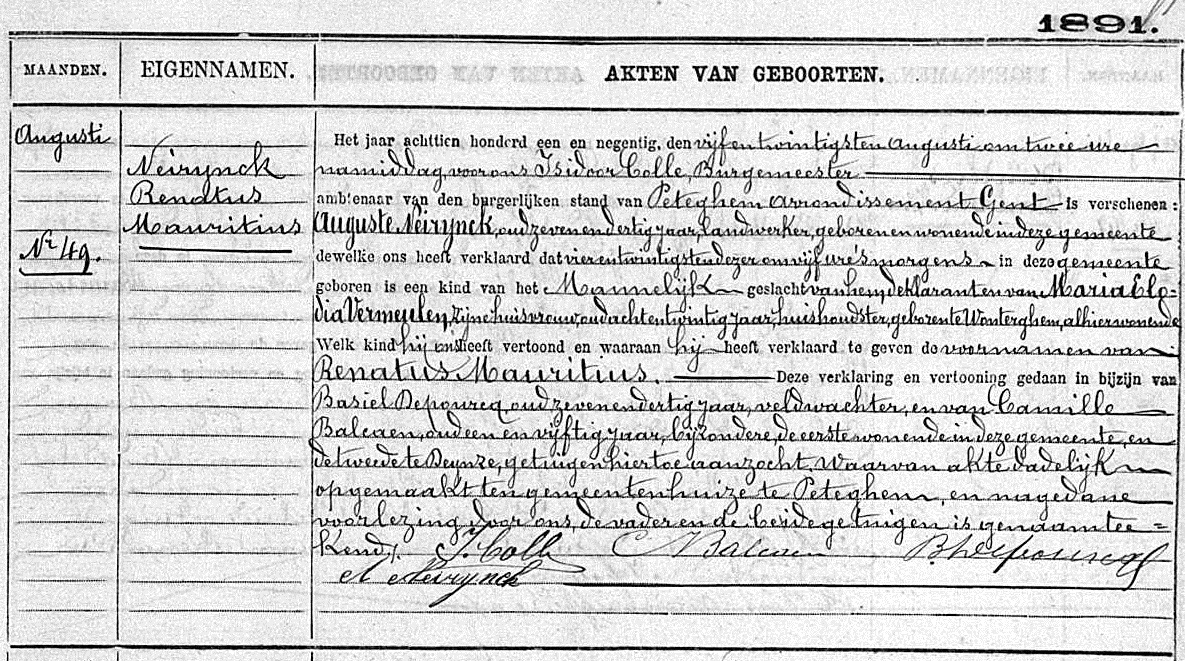 1891.
MAANDEN.
EIGENNAMEN.
AKTEN VAN GEBOORTEN.
Augusti
Nr 49.
Neirynck
Renatus
Mauritius
Het jaar achttien honderd een en negentig, den vijfentwintigsten Augusti om twee ure
namiddag voor ons Isidoor Colle, Burgemeester
ambtenaar van den burgerlijken stand van Peteghem arrondissement Gent is verschenen:
Auguste Neirynck, oud zevenendertig jaar, landwerker, geboren en wonende in deze gemeente
dewelke ons heeft verklaard dat vierentwintigsten dezer om vijf ure 's morgens in deze gemeente
geboren is een kind van het Mannelijk geslacht van hem, deklarant en van Maria Elo=
dia Vermeulen, zijne huisvrouw, oud achtentwintig jaar, huishoudster, geboren te Wonterghem, alhier wonende
Welk kind hij ons heeft vertoond en waaraan hij heeft verklaard te geven de voornamen van
Renatus Mauritius. Deze verklaring en vertooning gedaan in bijzijn van
Basiel Depourcq, oud zevenendertig jaar, veldwachter, en van Camille
Balcaen, oud een en vijftig jaar, bijzondere, de eerste wonende in deze gemeente, en
de tweede te Deynze, getuigen hiertoe aanzocht. Waarvan akte dadelijk
opgemaakt ten gemeentenhuize te Peteghem, en na gedane
voorlezing door ons, de vader en de beide getuigen is genaamtee=
kend/.
I. Colle C Balcaen B. Depourcq
A Neirynck